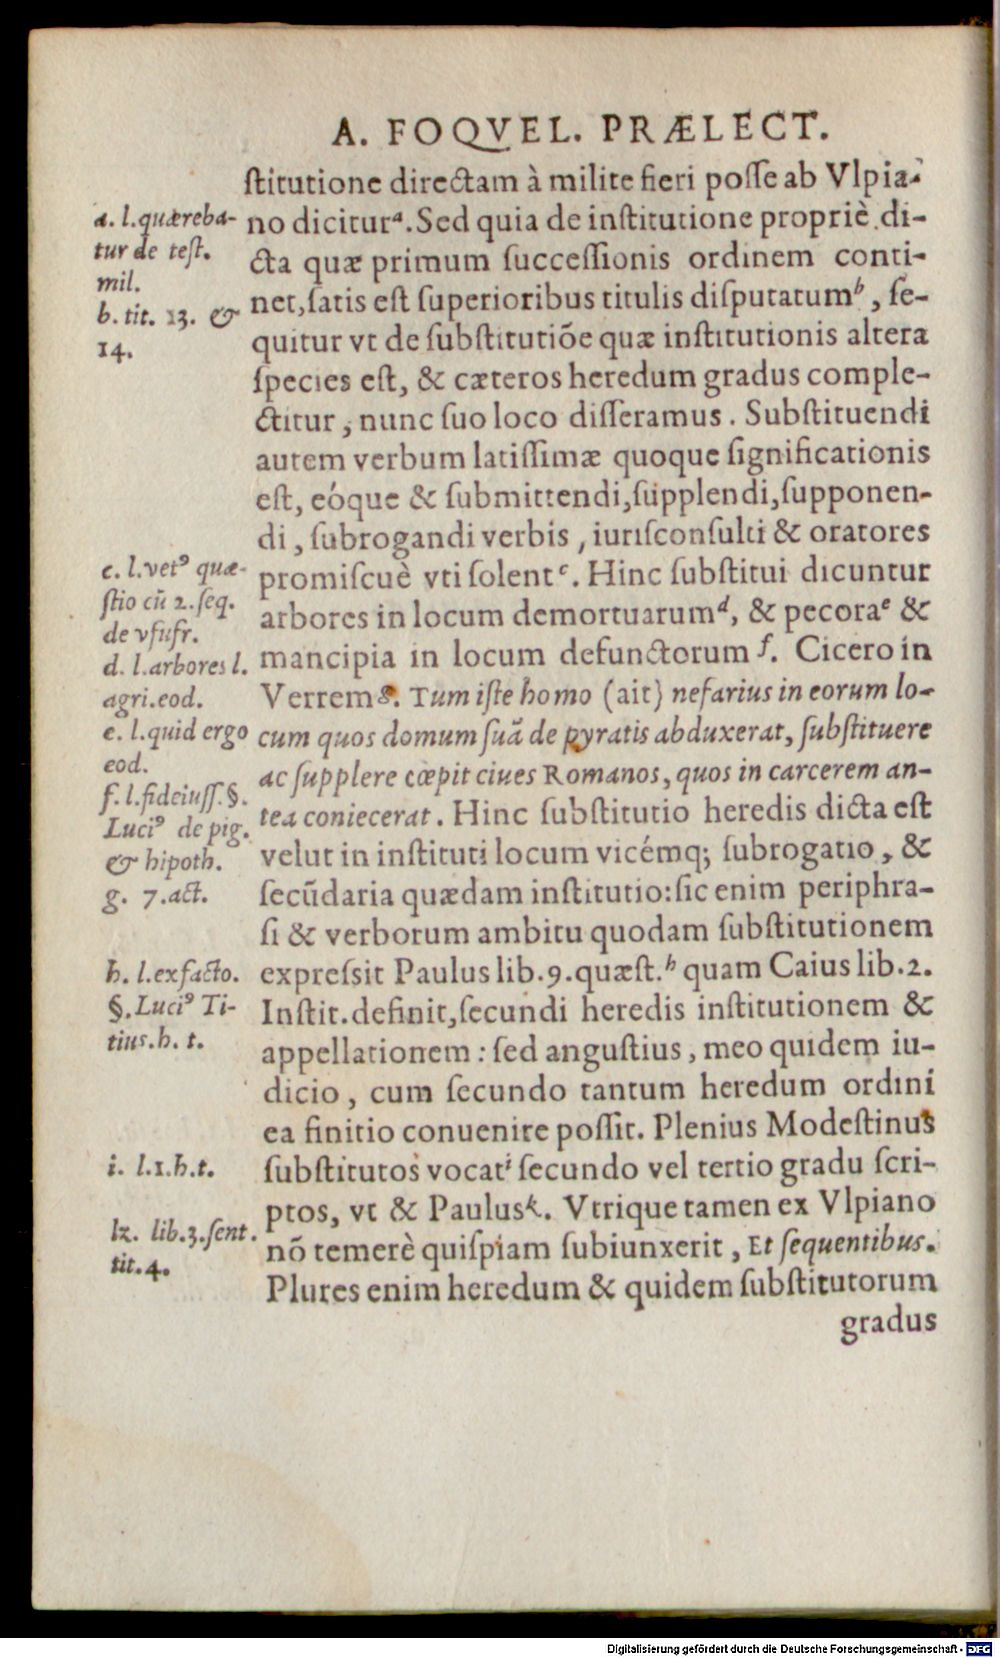 A. FOQVEL. PRÆLECT.
ſtitutione directam à milite fieri poſſe ab Vlpia-
no diciturᵃ. Sed quia de inſtitutione propriè di-
cta quæ primum ſucceſſionis ordinem conti-
net, ſatis eſt ſuperioribus titulis diſputatumᵇ, ſe-
quitur vt de ſubſtitutiõe quæ inſtitutionis altera
ſpecies eſt, & cæteros heredum gradus comple-
ctitur, nunc ſuo loco diſſeramus. Subſtituendi
autem verbum latiſſimæ quoque ſignificationis
eſt, eóque & ſubmittendi, ſupplendi, ſupponen-
di, ſubrogandi verbis, iuriſconſulti & oratores
promiſcuè vti ſolentᶜ. Hinc ſubſtitui dicuntur
arbores in locum demortuarumᵈ, & pecoraᵉ &
mancipia in locum defunctorumᶠ. Cicero in
Verremᵍ. Tum iſte homo (ait) nefarius in eorum lo-
cum quos domum ſuã de pyratis abduxerat, ſubſtituere
ac ſupplere cœpit ciues Romanos, quos in carcerem an-
tea coniecerat. Hinc ſubſtitutio heredis dicta eſt
velut in inſtituti locum vicémq; ſubrogatio, &
ſecũdaria quædam inſtitutio: ſic enim periphra-
ſi & verborum ambitu quodam ſubſtitutionem
expreſsit Paulus lib. 9. quæſt.ʰ quam Caius lib. 2.
Inſtit. definit, ſecundi heredis inſtitutionem &
appellationem: ſed anguſtius, meo quidem iu-
dicio, cum ſecundo tantum heredum ordini
ea finitio conuenire poſſit. Plenius Modeſtinus
ſubſtitutos vocatⁱ ſecundo vel tertio gradu ſcri-
ptos, vt & Paulusᵏ. Vtrique tamen ex Vlpiano
nõ temerè quiſpiam ſubiunxerit, Et ſequentibus.
Plures enim heredum & quidem ſubſtitutorum
gradus
a. l. quæreba-
tur de teſt.
mil.
b. tit. 13. &
14.
c. l. vetꝰ quæ-
ſtio cũ 2. ſeq.
de vſufr.
d. l. arbores l.
agri. eod.
e. l. quid ergo
eod.
f. l. fideiuſſ. §.
Luciꝰ de pig.
& hipoth.
g. 7. act.
h. l. ex facto.
§. Luciꝰ Ti-
tius. h. t.
i. l. 1. h. t.
k. lib. 3. ſent.
tit. 4.
Digitalisierung gefördert durch die Deutsche Forschungsgemeinschaft - DFG